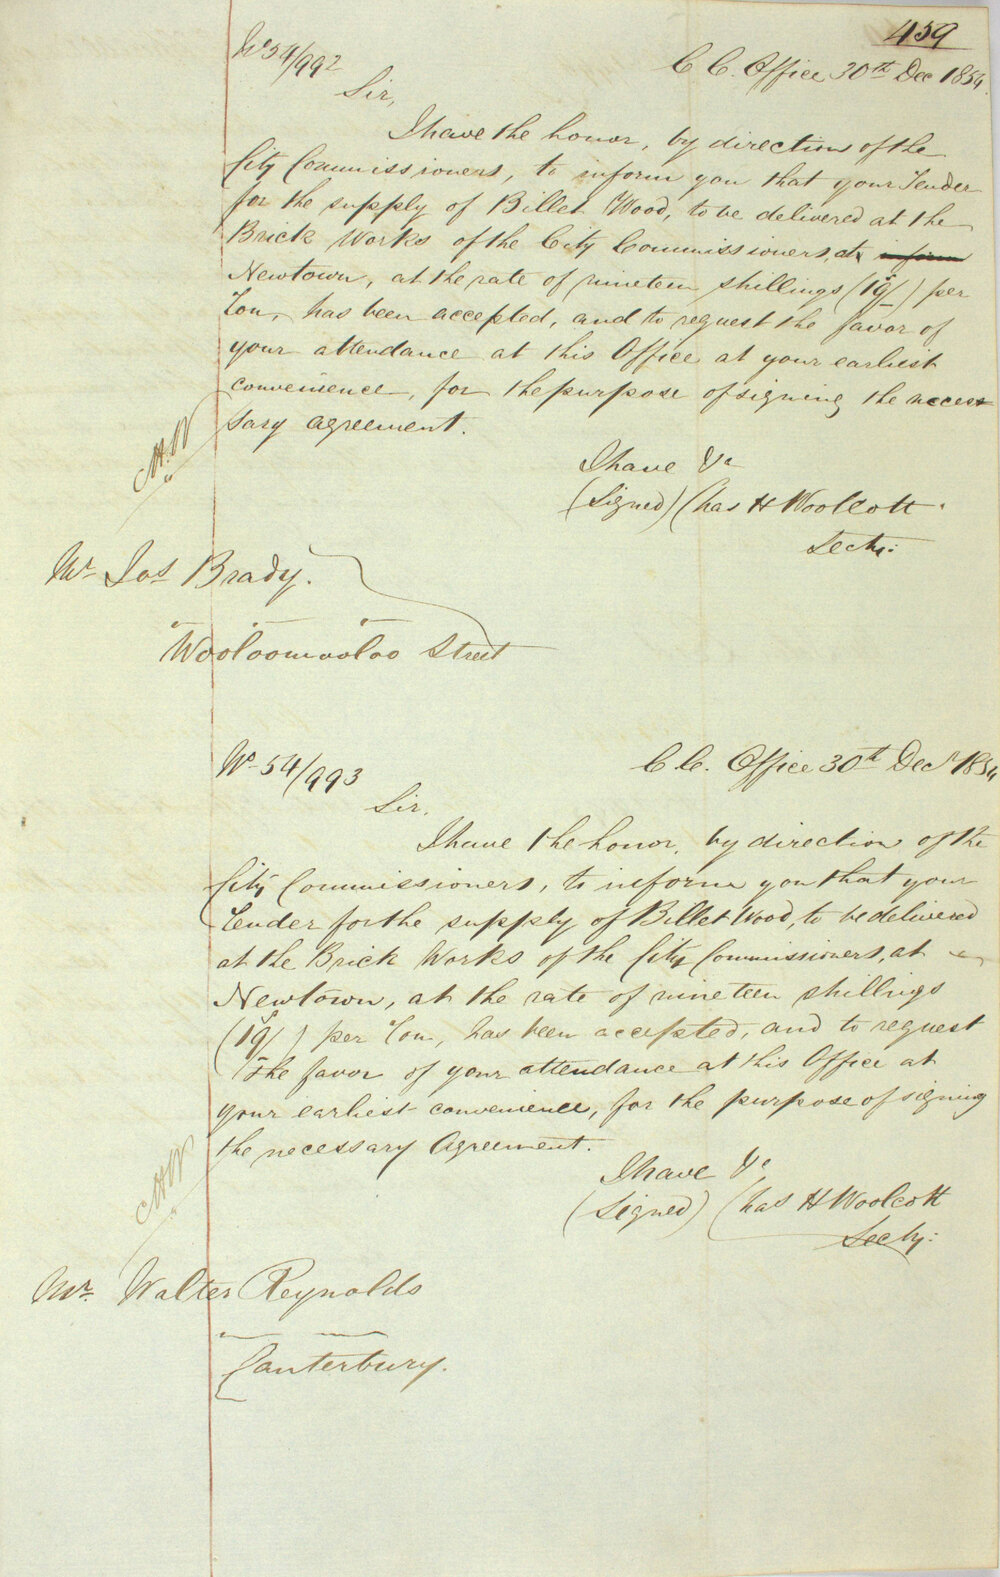 459
No 54/992
C C. Office 30th Dec 1854.
Sir,
I have the honor, by direction of the
City Commissioners, to inform you that your Tender
for the supply of Billet Wood, to be delivered at the
Brick Works of the City Commissioners, at inform
Newtown, at the rate of nineteen shillings (19/) per
Ton, has been accepted, and to request the favor of
your attendance at this Office at your earliest
convenience, for the purpose of signing the neces
sary agreement.
I have &c
(Signed) Chas H Woolcott.
Secty:
Mr Jos Brady.
Wooloomooloo Street
No 54/993
C C. Office 30th Decr 1854
Sir,
I have the honor, by direction of the
City Commissioners, to inform you that your
Tender for the supply of Billet Wood, to be delivered
at the Brick Works of the City Commissioners, at
Newtown, at the rate of nineteen shillings
(19/) per Ton, has been accepted, and to request
the favor of your attendance at this Office at
your earliest convenience, for the purpose of signing
the necessary Agreement.
I have &c
(Signed) Chas H Woolcott
Secty:
Mr. Walter Reynolds
Canterbury.